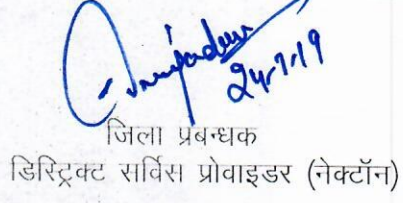 24-7-19
जिला प्रबन्धक
डिस्ट्रिक्ट सर्विस प्रोवाइडर (नेक्टॉन)